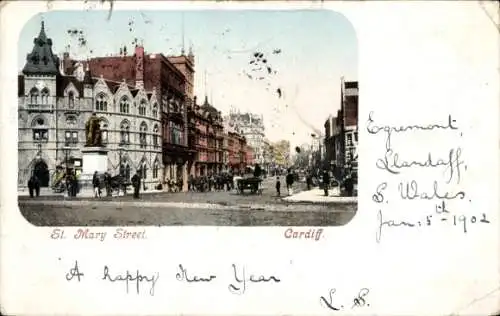 Egremont,
Llandaff,
S. Wales
Jan. 5th 1902
St. Mary Street.
Cardiff.
A happy New Year
L. S.